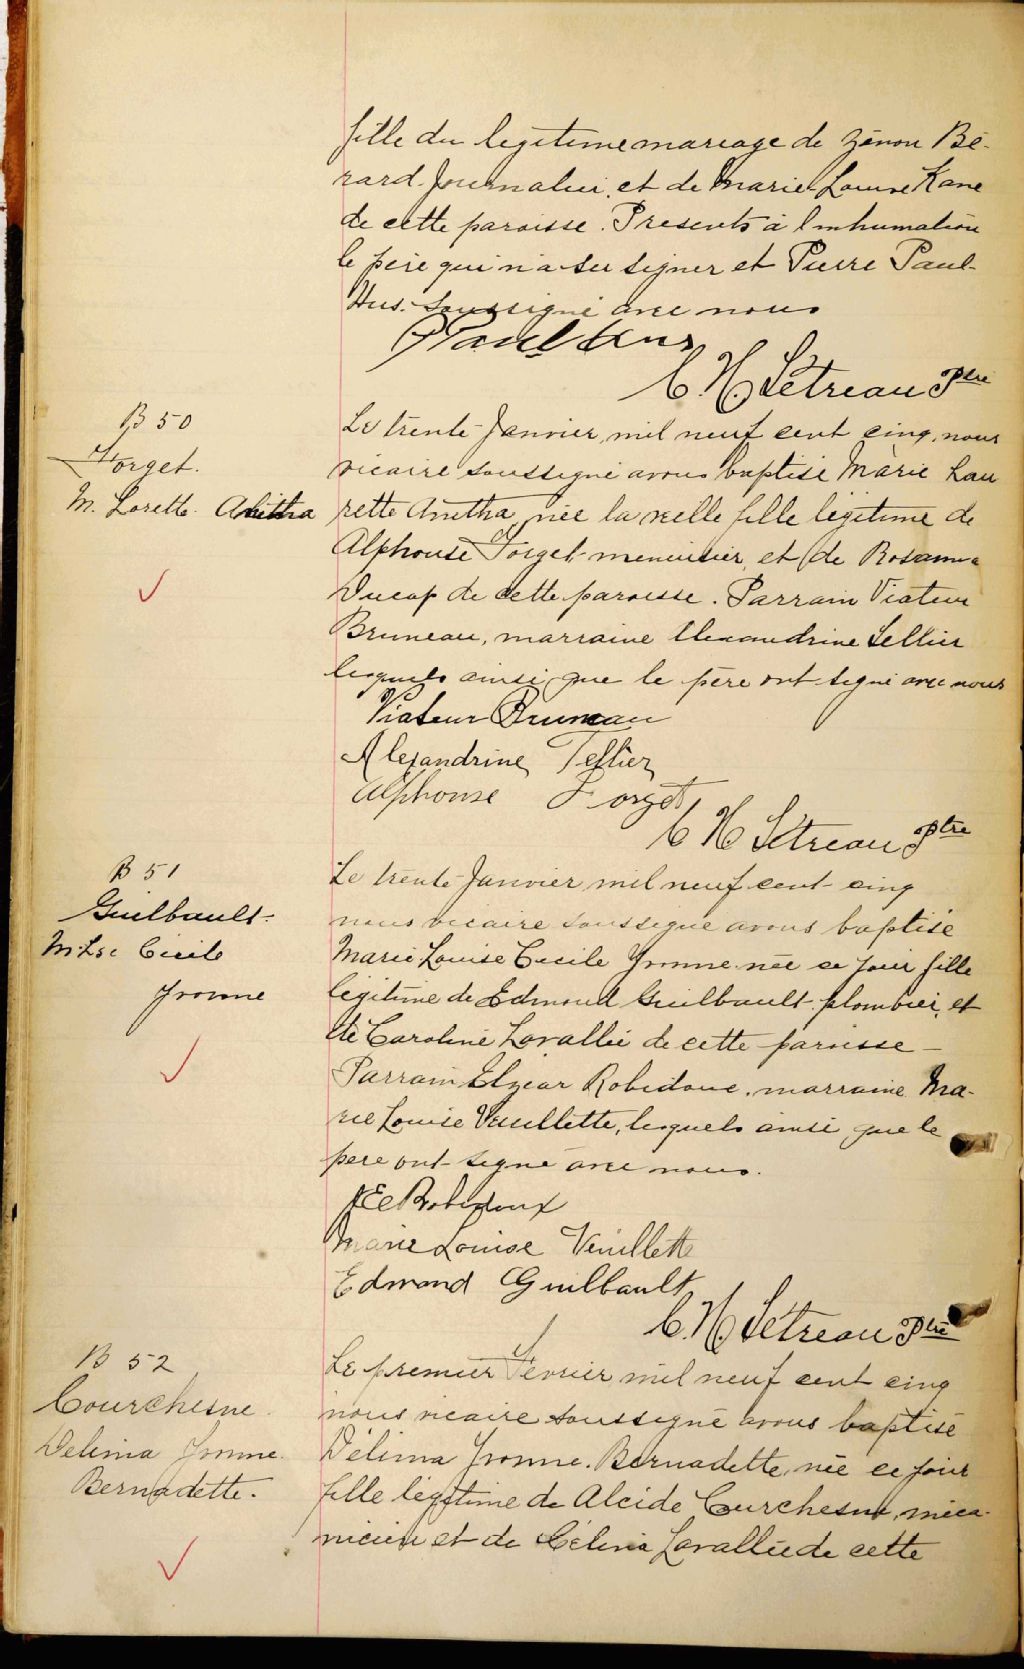 fille du légitime mariage de Zénon Bé-
rard journalier, et de Marie-Louise Kane
de cette paroisse. Présents à l'inhumation
le père qui n'a su signer et Pierre Paul-
Hus soussigné avec nous
P Paul Hus
C. H. Sétreau Ptre
B 50
Forget.
M. Lorette Anittha
Le trente Janvier mil neuf cent cinq, nous
vicaire soussigné avons baptisé Marie Lau
rette Anittha, née la veille fille légitime de
Alphonse Forget menuisier, et de Rosanna
Ducap de cette paroisse. Parrain Viateur
Bruneau, marraine Alexandrine Tellier
lesquels ainsi que le père ont signé avec nous
Viateur Bruneau
Alexandrine Tellier
Alphonse Forget
C H Sétreau Ptre
B 51
Guilbault.
M. Lse Cécile
Yvonne
Le trente Janvier mil neuf cent cinq
nous vicaire soussigné avons baptisé
Marie Louise Cécile Yvonne née ce jour fille
légitime de Edmond Guilbault, plombier, et
de Caroline Lavallée de cette paroisse –
Parrain Elzéar Robidoux, marraine Ma-
rie Louise Veuillette, lesquels ainsi que le
père ont signé avec nous.
J E Robidoux
Marie Louise Veuillette
Edmond Guilbault
C. H. Sétreau Ptre
B 52
Courchesne
Délima Yvonne
Bernadette.
Le premier Février mil neuf cent cinq
nous vicaire soussigné avons baptisé
Délima Yvonne Bernadette, née ce jour
fille légitime de Alcide Courchesne, méca-
nicien et de Célina Lavallée de cette